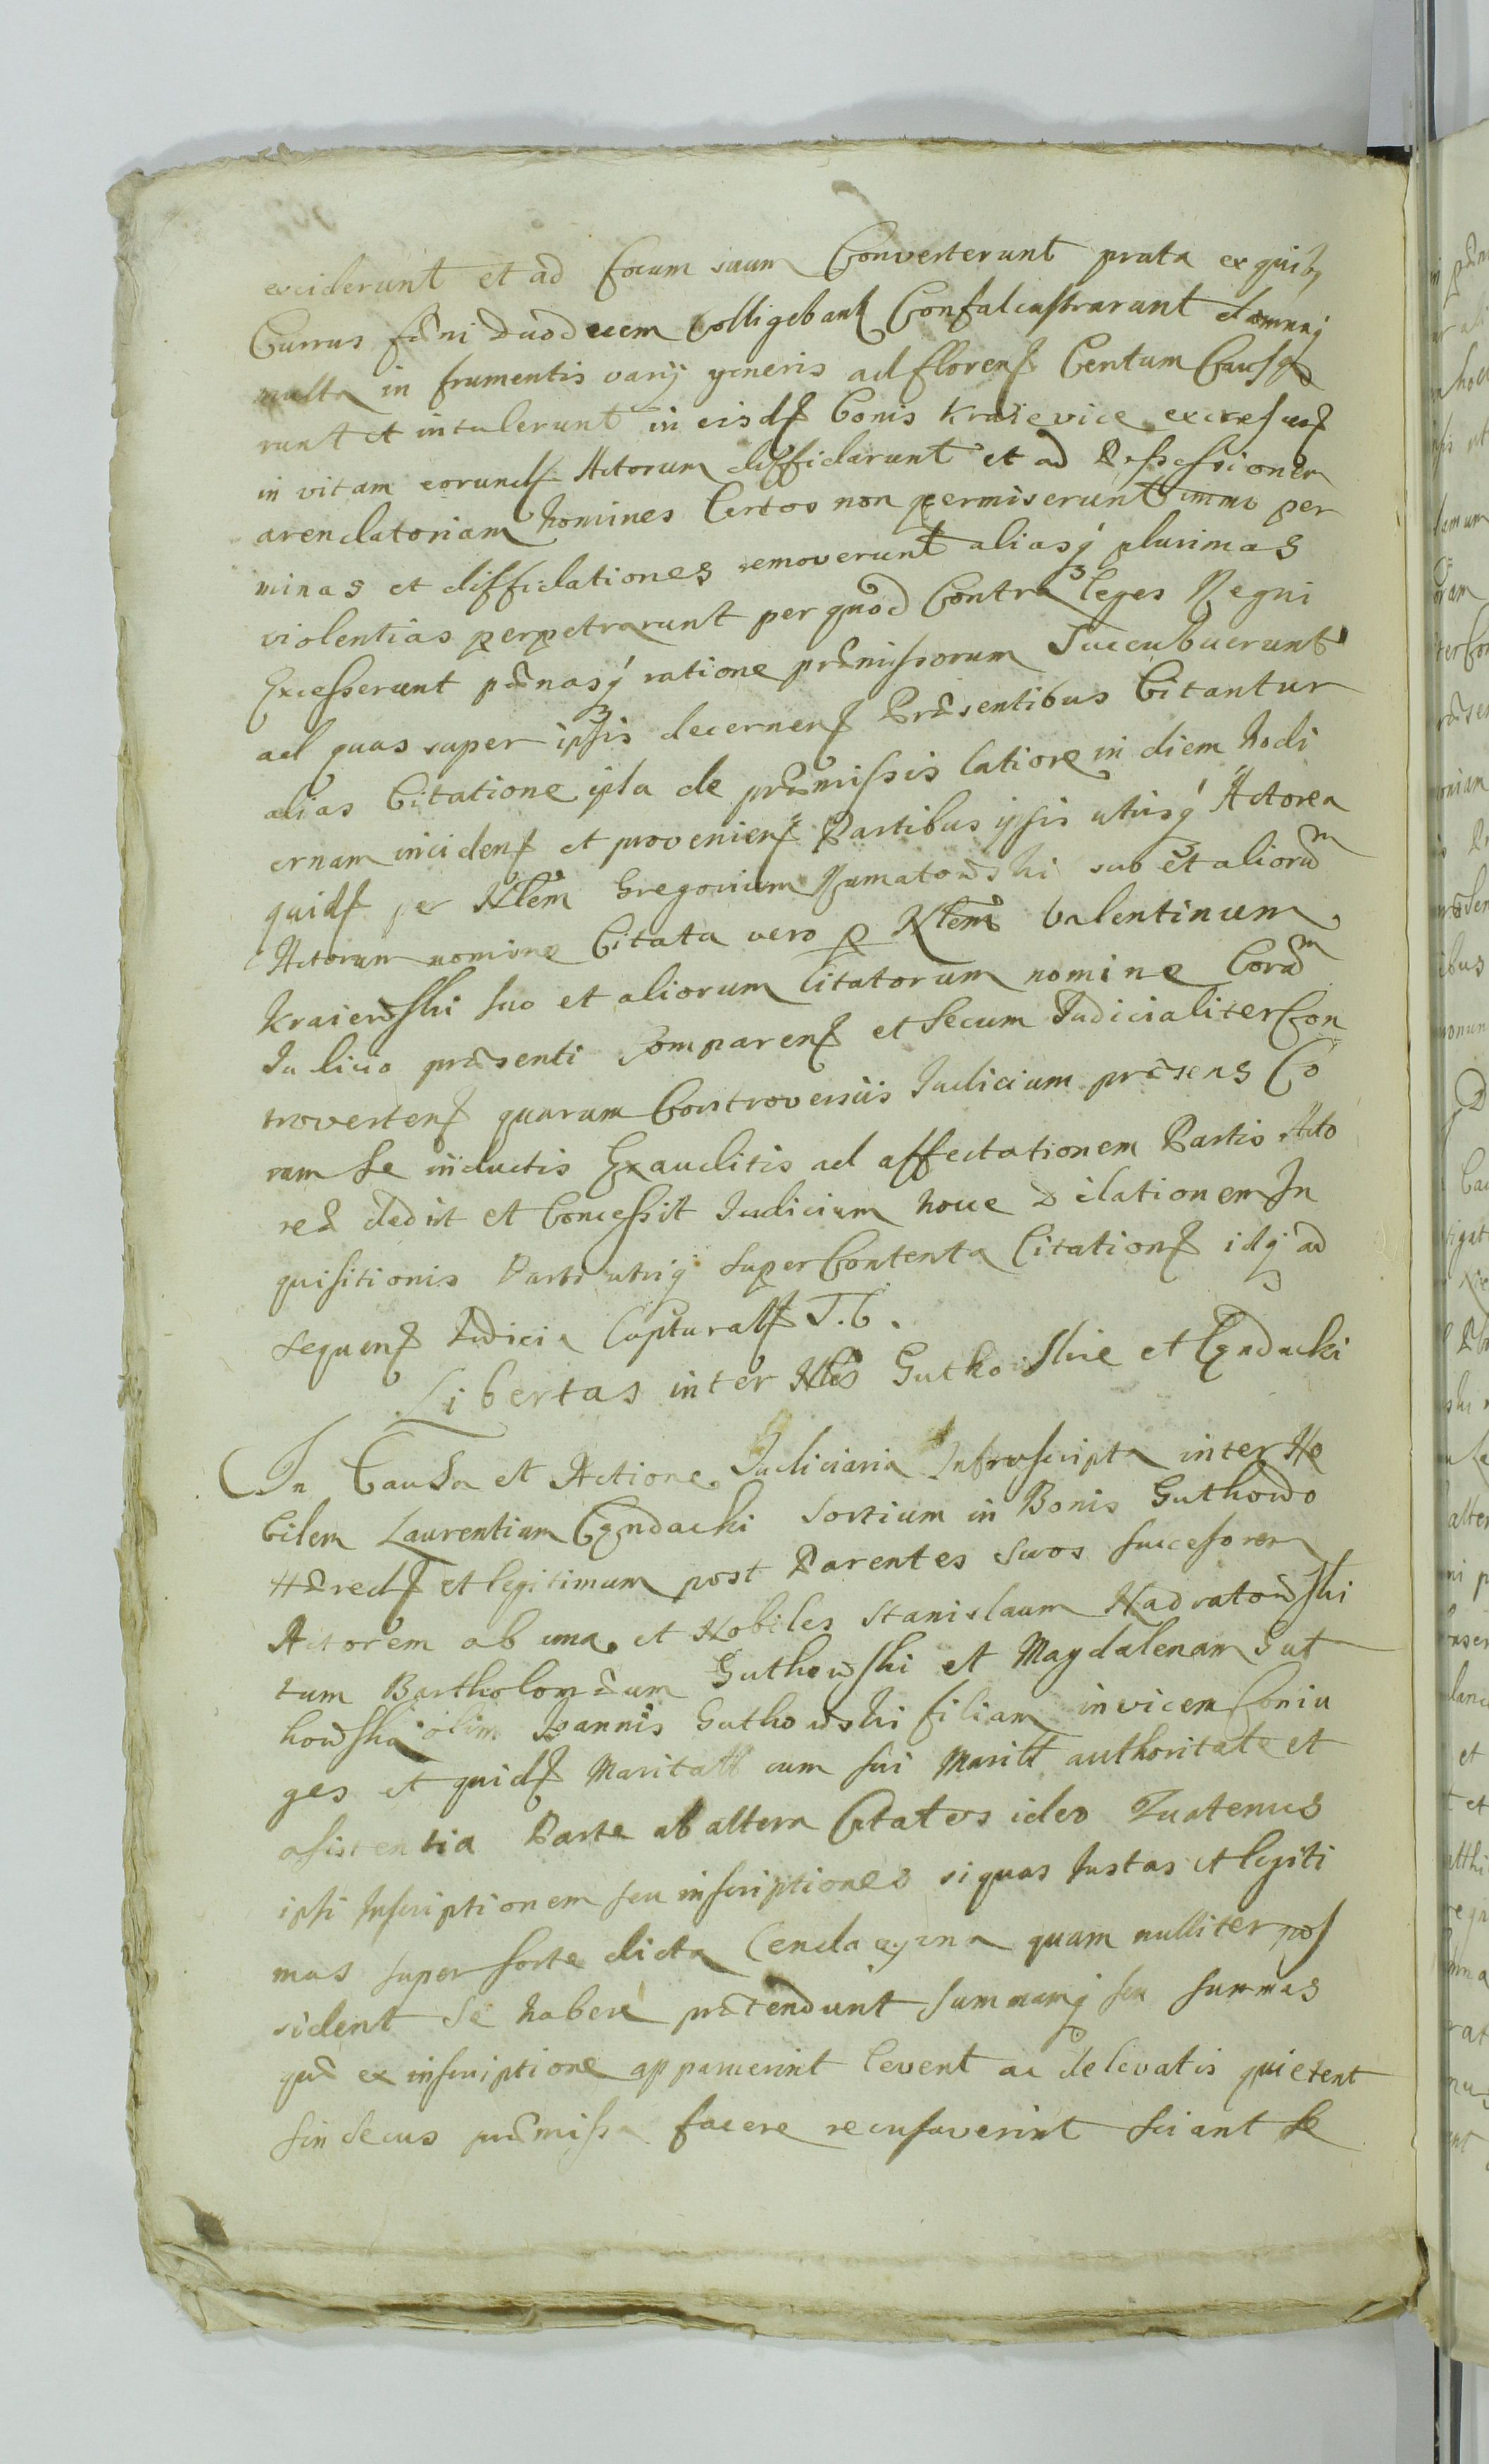 exciderunt et ad focum suum Converterunt prata ex quibq
Currus fæni duodecem Colligebant Confalcastrarunt damnaq
multa in frumentis varij generis ad floren Centum Causa
runt et intulerunt in eisd bonis Kraievice excresen
in vitam eorund Actorum diffidarunt et ad Possessionem
arendatoriam homines Certos non permiserunt immo per
minas et diffidationes removerunt aliasq plurimas
violentias perpetrarunt per quod Contra leges Regni
Excesserunt pænasq ratione præmissorum Succubuerunt
ad quas super ipsis decernen Præsentibus Citantur
alias Citatione ipsa de præmissis latiore in diem hodi
ernam inciden et provenien Partibus ipsis utrisq Actorea
quid per Nlem Gregorium suo et aliorum
Actorum nomine Citata vero p Nlem Valentinum
Kraiewski suo et aliorum Citatorum nomine Coram
Iudicio præsenti Comparen et secum Iudicialiter Con
troverten quarum Controversiis Iudicium præsens Co
ram se inductis Exauditis ad affectationem Partis Acto
reæ dedit et Concessit Iudicium hocce dilationem In
quisitionis Parti utriq super Contenta Citation idq ad
sequen Iudicia Capturall T. C.
Libertas inter Nles Guthowskie et Cendacki
In Causa et Actione Iudiciaria Infrascripta inter No
bilem Laurentium Cendacki sortium in Bonis Guthowo
Hæred et legitimum post Parentes suos succesorem
Actorem ab una et Nobiles Stanislaum Nadratowski
tum Bartholomæum Guthowski et Magdalenam Gut
howska olim Ioannis Guthowski filiam invicem Coniu
ges et quid Maritatt cum sui Maritt authoritate et
asistentia Parte ab altera Citatos ideo Quatenus
ipsi Inscriptionem seu inscriptiones siquas Iustas et legiti
mas super sorte dicta quam nulliter pos
sident se habere prætendunt summamq seu summas
quæ ex inscriptione apparuerint levent ac de levatis quietent
sin secus præmissa facere recusaverint sciant se